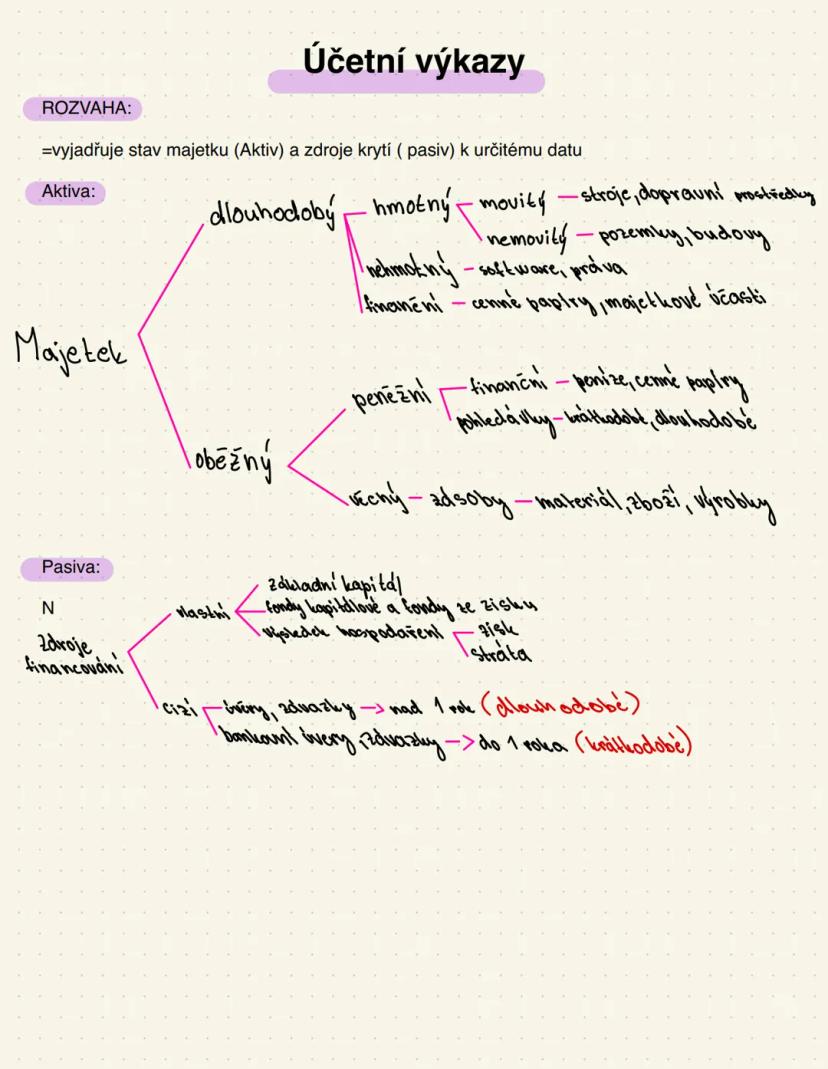 Účetní výkazy
ROZVAHA:
=vyjadřuje stav majetku (Aktiv) a zdroje krytí ( pasiv) k určitému datu
Aktiva:
dlouhodobý
hmotný
movitý — stroje, dopravní prostředky
nemovitý — pozemky, budovy
nehmotný – software, práva
finanční — cenné papíry, majetkové účasti
Majetek
oběžný
peněžní
finanční — peníze, cenné papíry
pohledávky – krátkodobé, dlouhodobé
věcný — zásoby — materiál, zboží, výrobky
Pasiva:
N
Zdroje
financování
vlastní
základní kapitál
fondy kapitálové a fondy ze zisku
výsledek hospodaření
zisk
strata
cizí
úvěry, závazky → nad 1 rok (dlouhodobé)
bankovní úvery, závazky → do 1 roka (krátkodobé)